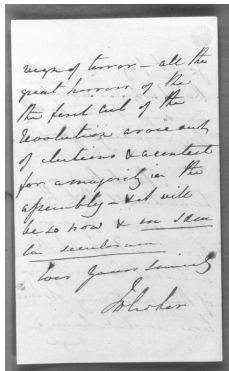 reign of terror – all the
great horrors of the
the first act of the
Revolution arose out
of elections & a contest
for a majority in the
assembly – & it will
be so now & in
Ever Yours